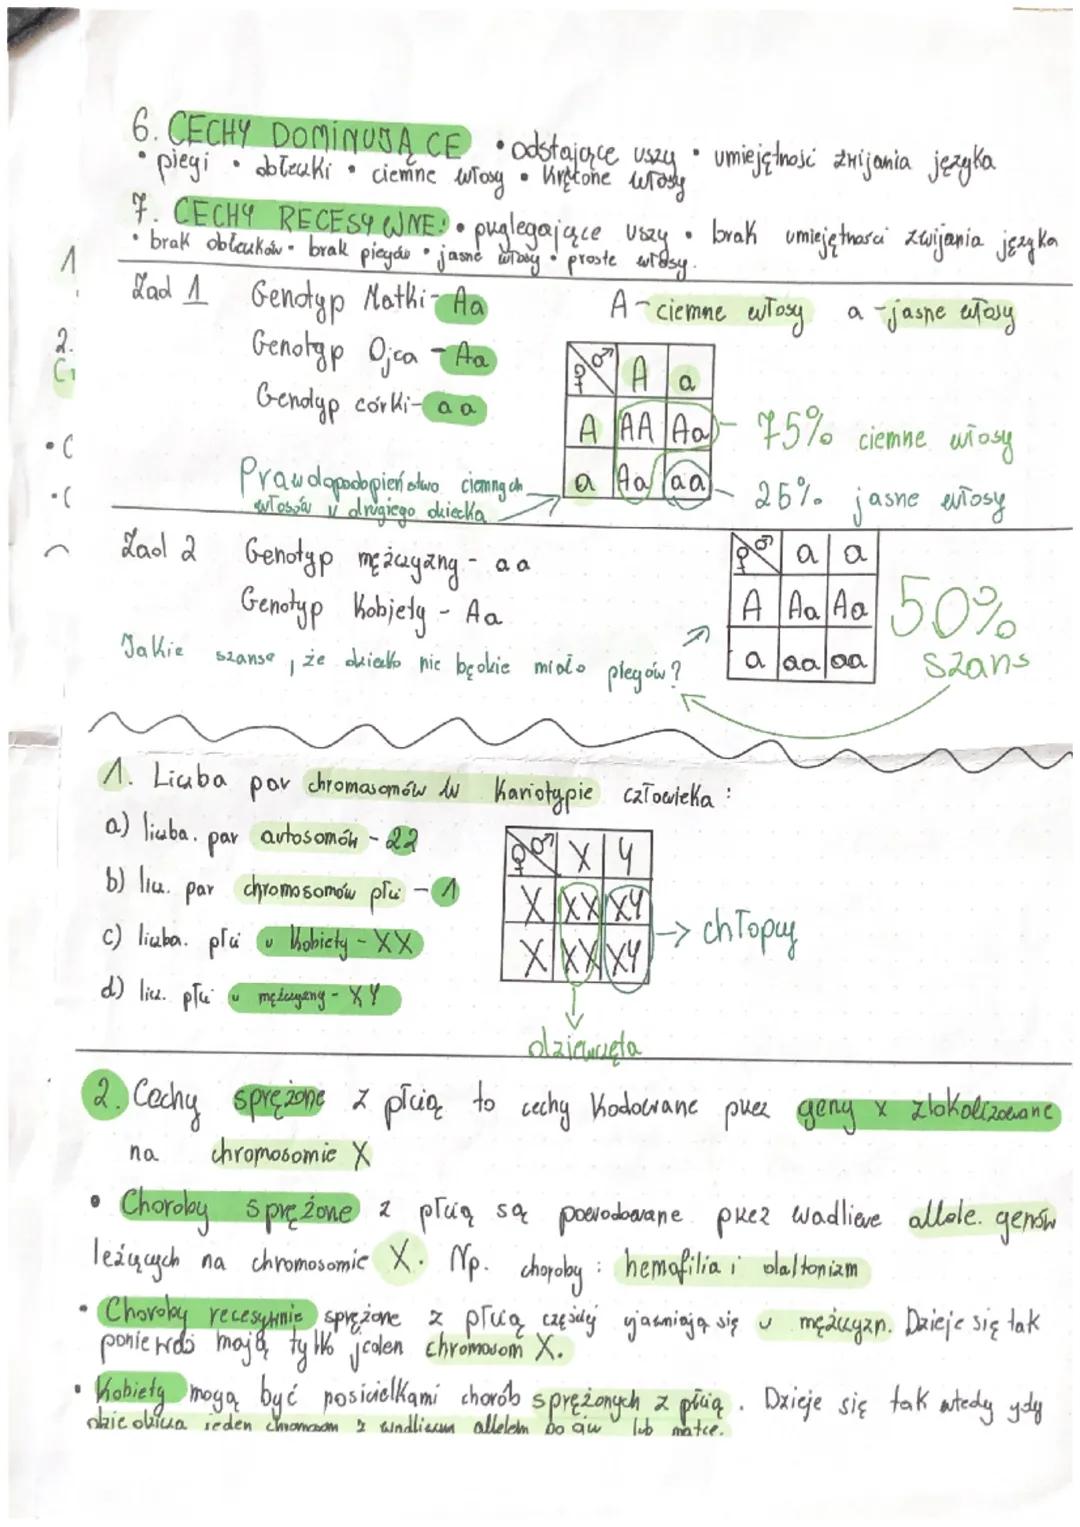 6. CECHY DOMINUJĄCE • odstające uszy • umiejętność zwijania języka
• piegi • obłeczki • ciemne włosy • kręcone włosy
7. CECHY RECESYWNE: • puzlegające uszy • brak umiejętności zwijania języka
• brak obłeczków • brak piegów • jasne włosy • proste włosy.
1
2.
Zad 1 Genotyp Matki - Aa A - ciemne włosy a - jasne włosy
Genotyp Ojca - Aa
Genotyp córki - aa
♀ ♂ A a
A AA Aa - 75% ciemne włosy
a Aa aa - 25% jasne włosy
Prawdopodopieństwo ciemnych
włosów u drugiego dziecka
Zad 2 Genotyp mężczyzny - aa
Genotyp Kobiety - Aa
♀ ♂ a a
A Aa Aa
a aa aa
50%
szans
Jakie szanse, że dziecko nie będzie miało piegów?
1. Liczba par chromosomów w Kariotypie człowieka :
a) liczba. par autosomów - 22
b) licz. par chromosomów płci - 1
c) liczba. płci u Kobiety - XX
d) licz. płci u mężczyzny - XY
♀ ♂ X Y
X XX XY
X XX XY
→ chłopcy
dziewczęta
2. Cechy sprężone z płcią to cechy Kodowane przez geny x zlokalizowane
na chromosomie X
• Choroby sprężone z płcią są powodowane przez wadliwe allele. genów
leżących na chromosomie X. Np. choroby : hemofilia i daltonizm
• Choroby recesywnie sprężone z płcią częściej ujawniają się u mężczyzn. Dzieje się tak
ponieważ mają tylko jeden chromosom X.
• Kobiety mogą być nosicielkami chorób sprężonych z płcią. Dzieje się tak wtedy gdy
jeden chromosom z wadliwym allelem po lub matce.